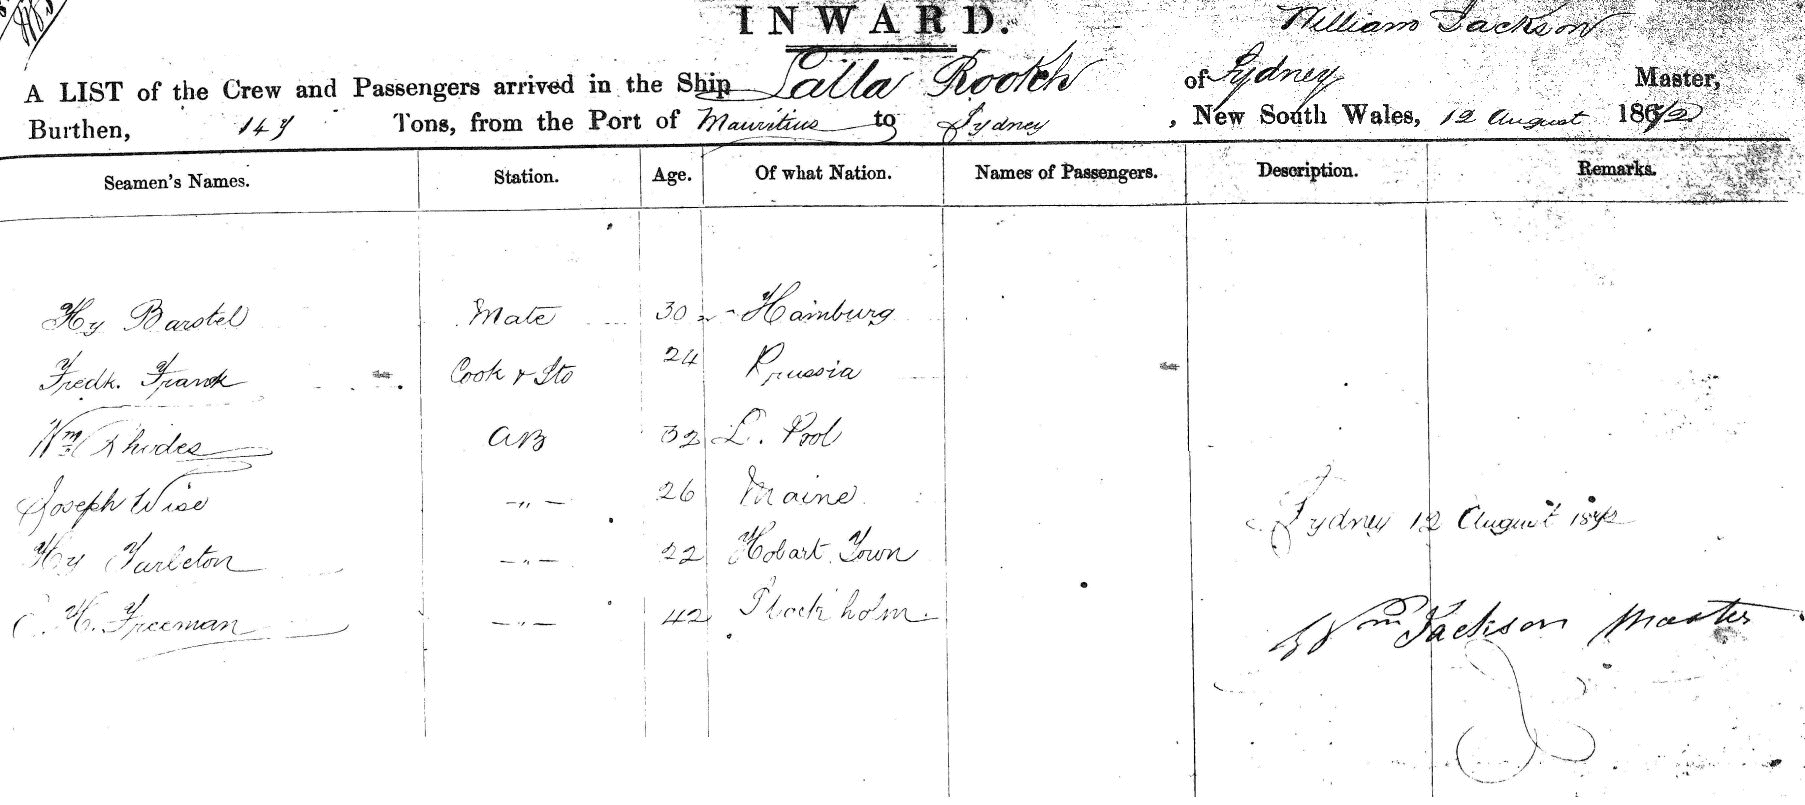 INWARD.
William Jackson
A LIST of the Crew and Passengers arrived in the Ship Lalla Rookh of Sydney Master,
Burthen, 147 Tons, from the Port of Mauritius to Sydney, New South Wales, 12 August 1872
Seamen's Names. Station. Age. Of what Nation. Names of Passengers. Description. Remarks.
Hy Barstel Mate 30 Hamburg
Fredk. Frank Cook & Std 24 Prussia
Wm Rhodes AB 32 L. Pool
Joseph Wise -"- 26 Maine
Sydney 12 August 1872
Hy Tarleton -"- 22 Hobart Town
C. H. Freeman -"- 42 Stockholm
Wm Jackson Master